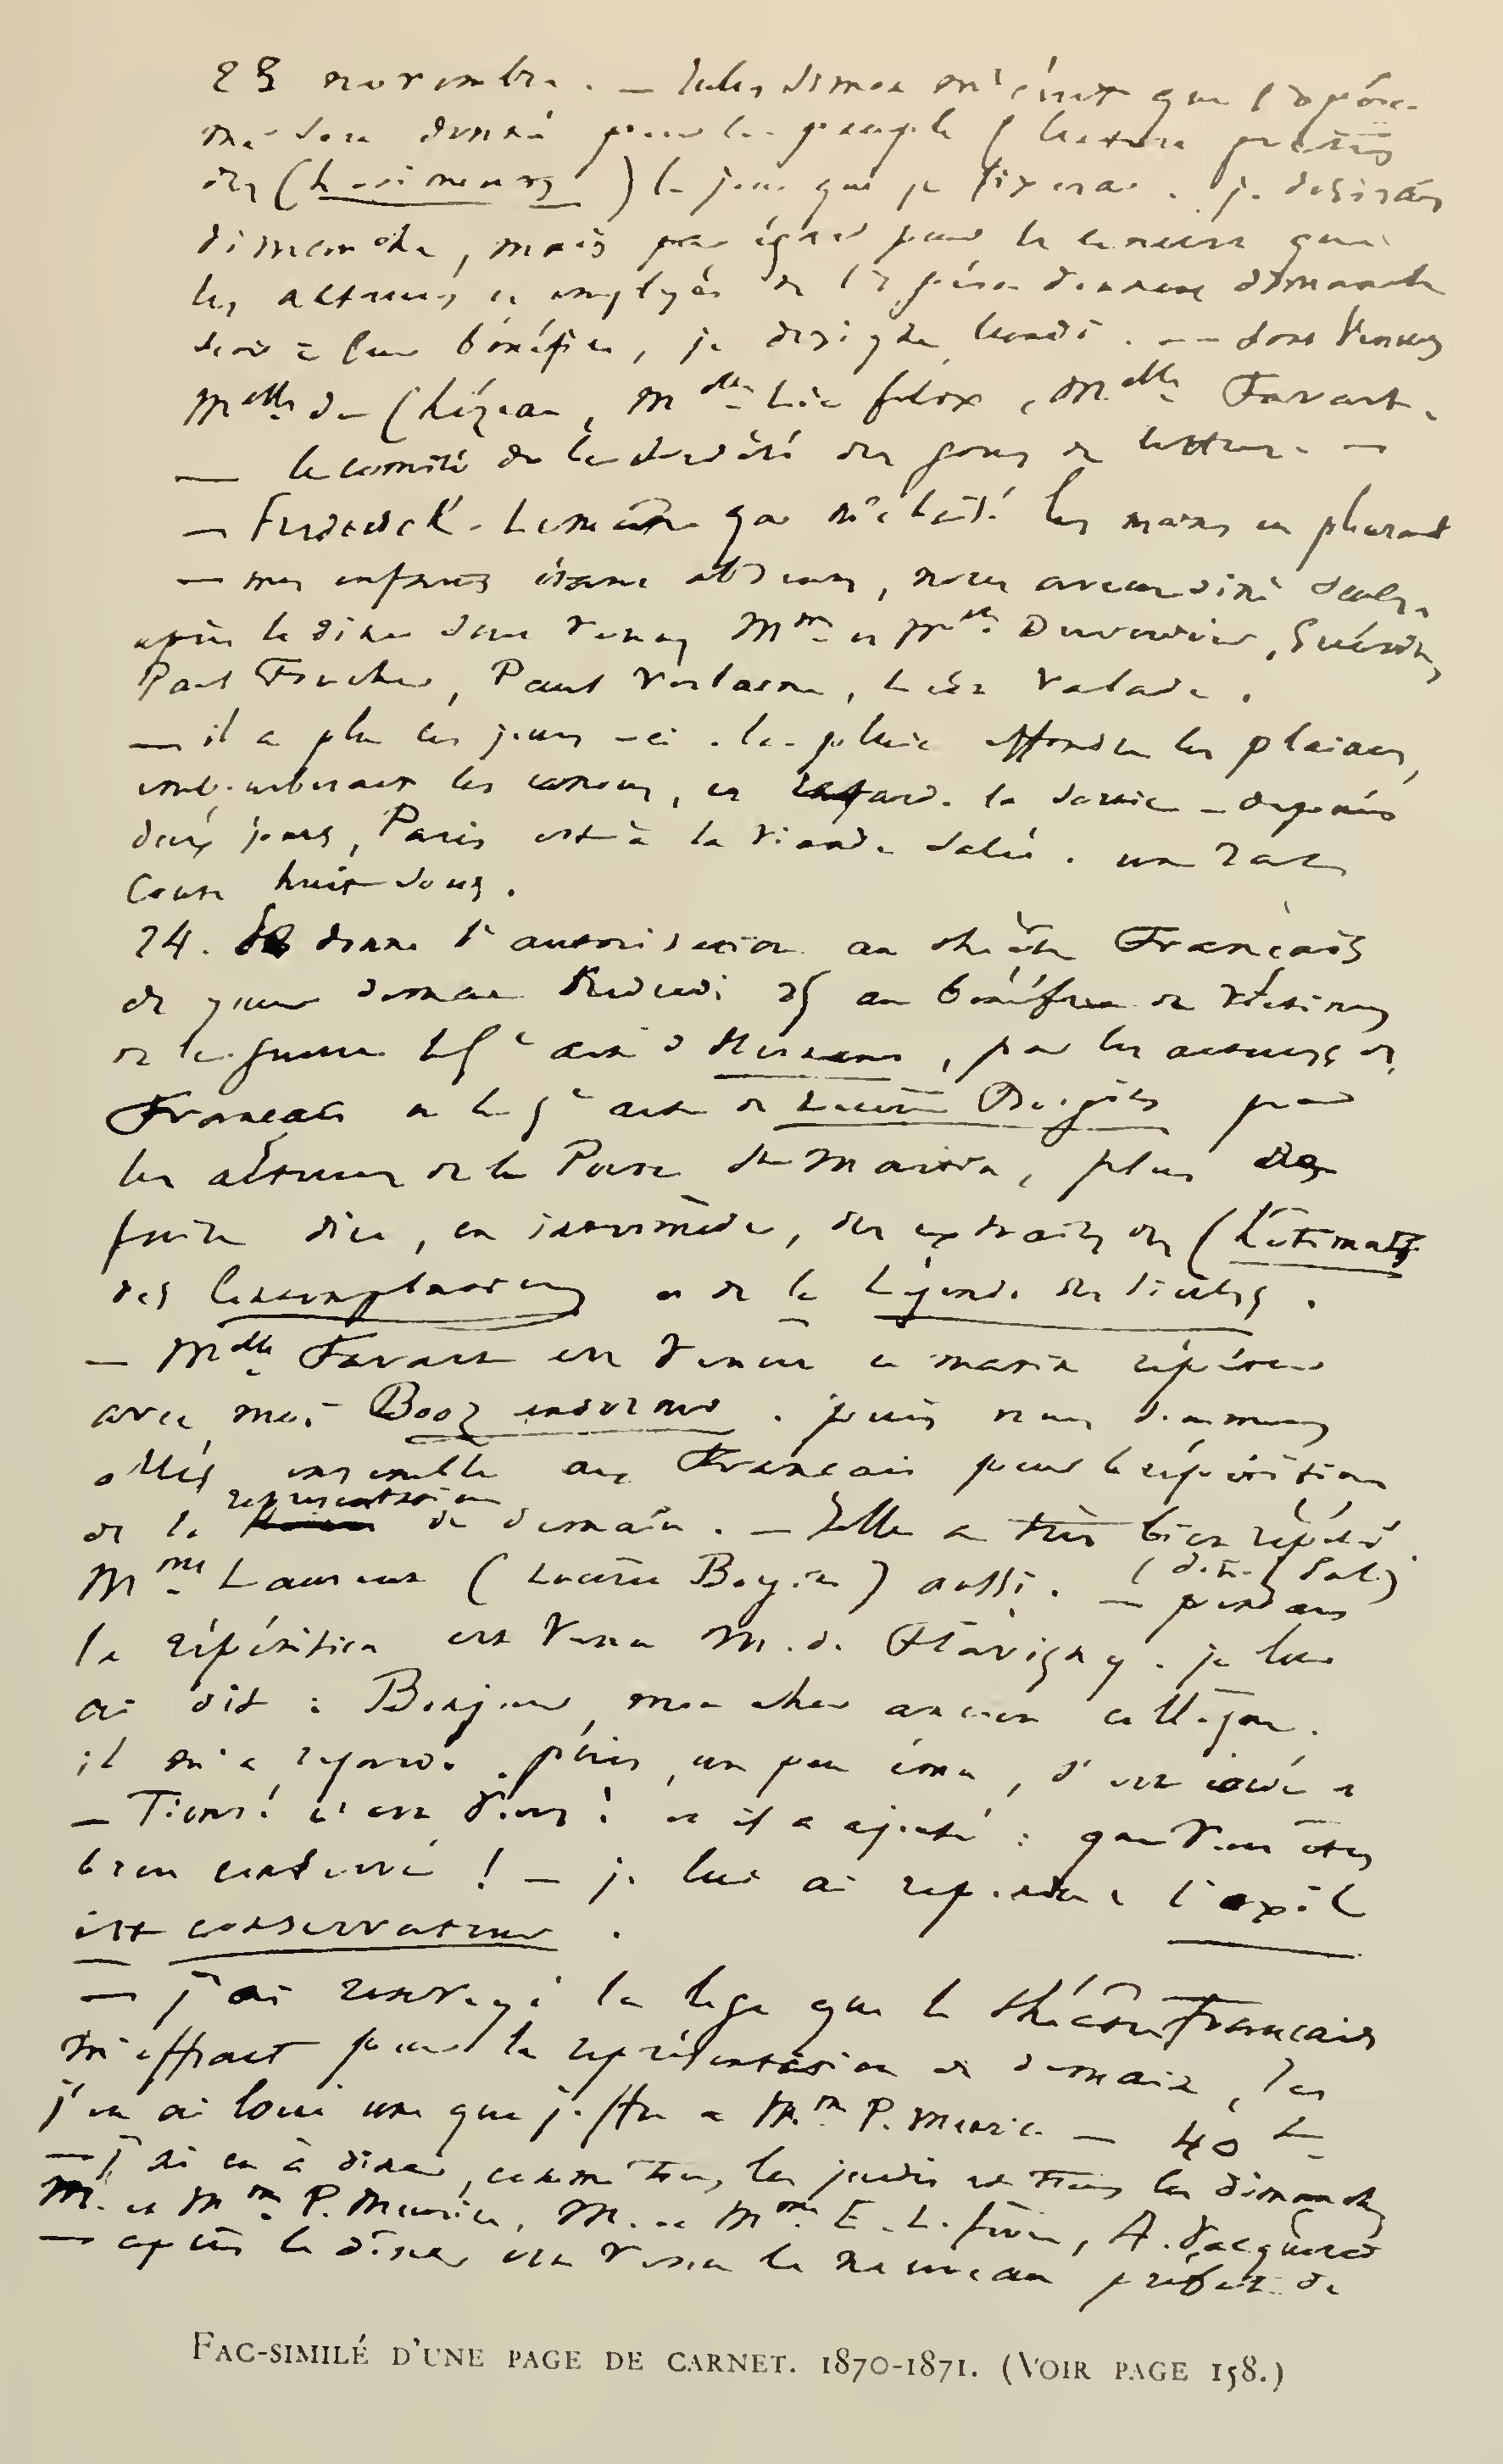 23 novembre. — Jules Simon m'écrit que l'Opéra
me sera donné pour le peuple (lecture gratis
des Châtiments) le jour que je fixerai. je désirais
dimanche, mais par égard pour le concert que
les acteurs et employés de l'opéra donnent dimanche
soir à leur bénéfice, je désigne lundi. — sont venus
Melle de Chézeau, Melle Lia felix, Melle Favart.
— le comité de la société des gens de lettres. —
— Frédérick-Lemaître qui m'a baisé les mains en pleurant
— mes enfants étant absents, nous avons dîné seuls.
après le dîner sont venus Mme et Melle Duverdier, Guérin,
Paul Foucher, Paul Verlaine, Léon Valade.
— il a plu ces jours-ci. la pluie effondre les plaines,
embourberait les canons, et retarde la sortie — depuis
deux jours, Paris est à la viande salée. un rat
coûte huit sous.
24. Je donne l'autorisation au théâtre Français
de jouer demain vendredi 25 au bénéfice des victimes
de la guerre le 5e acte d'Hernani, par les acteurs du
Français et le 5e acte de Lucrèce Borgia par
les acteurs de la Porte St Martin, plus de
faire dire, en intermède, des extraits des Châtiments
des Contemplations et de la Légende des siècles.
— Melle Favart est venue ce matin répéter
avec moi Booz endormi. puis nous sommes
allés ensemble aux Français pour la répétition
représentation
de la de demain. — Elle a très bien répété
Mme Laurent (Lucrèce Borgia) aussi. (doña Sol)
— pendant
la répétition est venu M. de Flavigny. je lui
ai dit : Bonjour, mon cher ancien collègue.
il m'a regardé. puis, un peu ému, s'est écrié :
— Tiens ! c'est vous ! et il a ajouté : que vous êtes
bien conservé ! — je lui ai répondu : l'exil
est conservateur.
— j'ai renvoyé la loge que le théâtre Français
m'offrait pour la représentation de demain, et
j'en ai loué une que j'offre à Mme P. Meurice. — 40
— j'ai eu à dîner, comme tous les jeudis et tous les dimanches
M. et Mme P. Meurice, M. et Mme E. Lefèvre, A. Vacquerie
— après le dîner est venu le nouveau préfet de
FAC-SIMILÉ D'UNE PAGE DE CARNET. 1870-1871. (VOIR PAGE 158.)